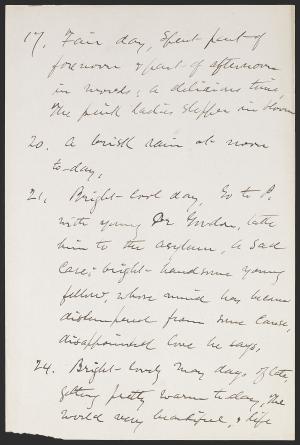 17. Fair day, Spent part of
forenoon & part of afternoon
in woods; a delicious time,
The pink ladies slipper in bloom
20. A brisk rain at noon
to-day,
21, Bright cool day, Go to P.
with young Dr Gordon, take
him to the asylum, a sad
case; bright handsome young
fellow, whose mind has become
distempered from some cause,
disappointed love he says,
24. Bright lovely May days of late,
getting pretty warm to-day, The
world very beautiful, & life